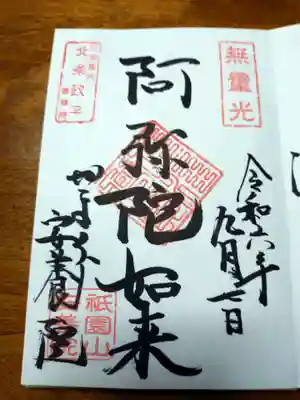 無量光
令和六年
九月七日
阿弥陀如来
北条政子
かまくら
安養院
祇園山